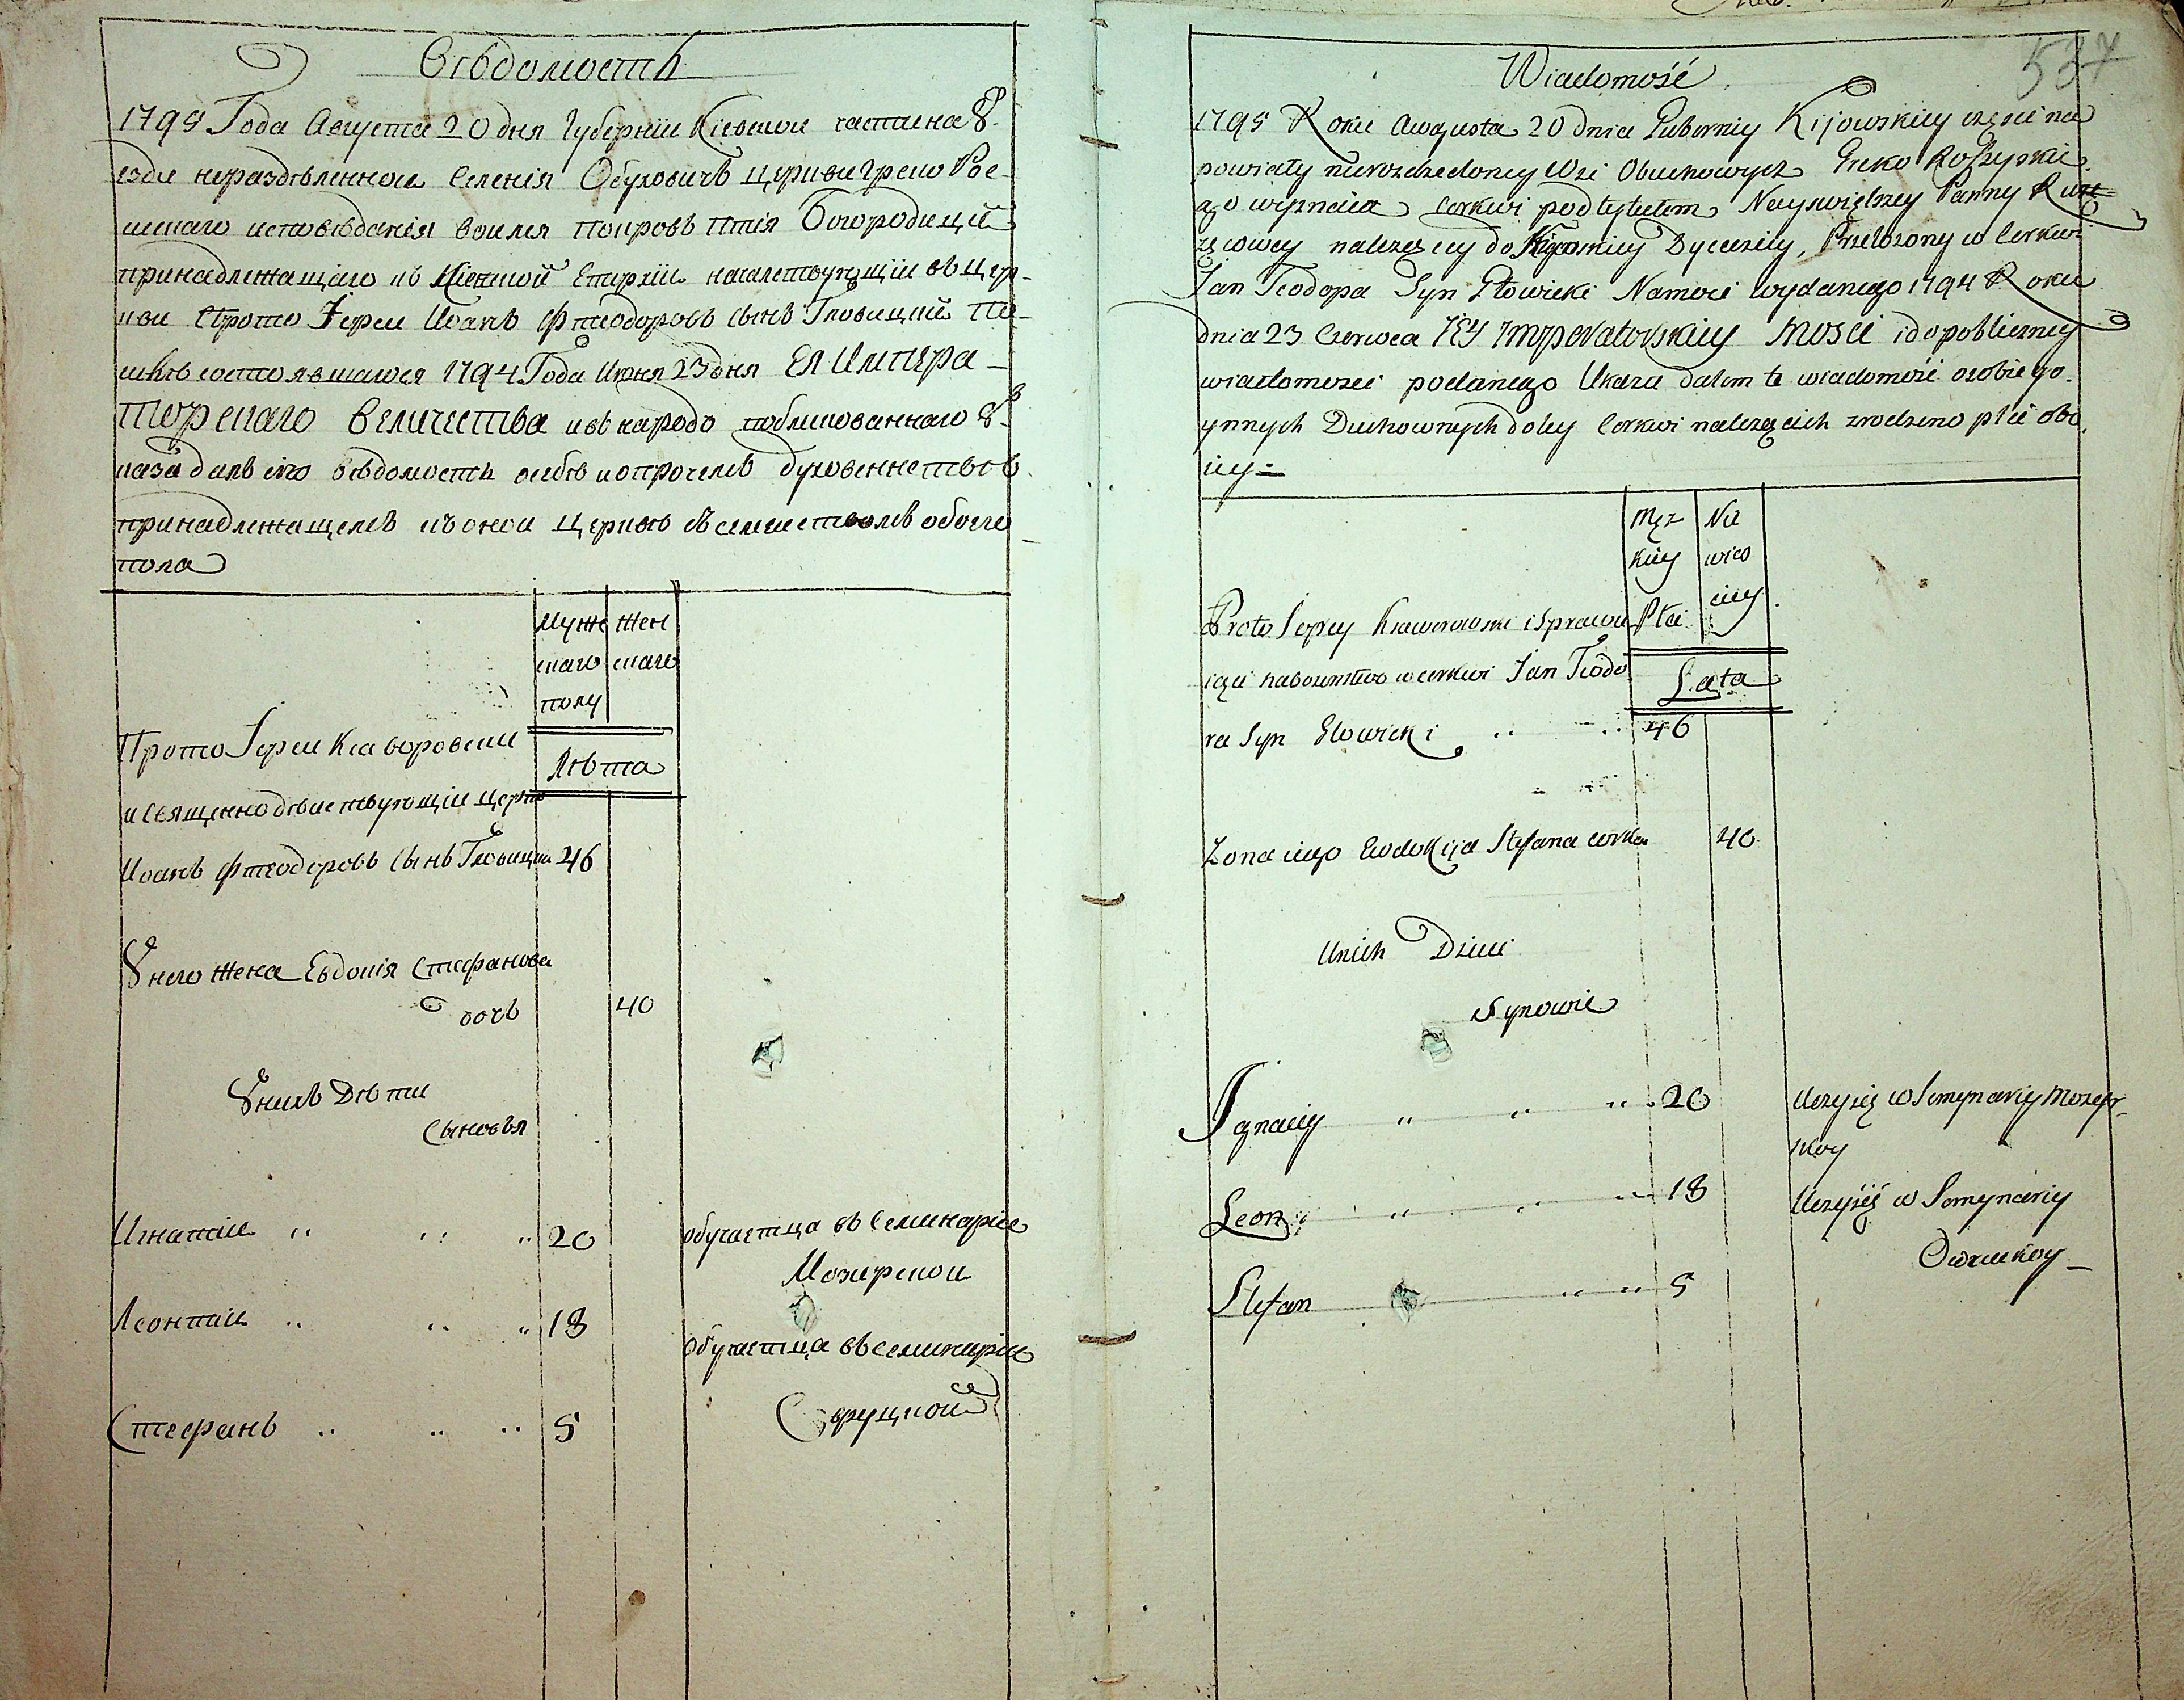 Вѣдомость
1795 Года Августа 20 дня Губернїи Кіевскои частина У-
езди нераздѣленнои Селенія Обуховичъ церкви Греко Рос-
скаго исповѣданія во имя Покровъ Птія Богородицы
принадлежащаго къ Кіевской Епархіи началствующїи въ цер-
кви Прото Іереи Иоанъ Фтеодоровъ сынъ Гловицкий По
силѣ состоявшагося 1794 Года Июня 23 дня ЕЯ ИМПЕРА-
ТОРСКАГО ВЕЛИЧЕСТВА и въ народъ публикованнаго У-
каза далъ сию вѣдомость о себѣ и о прочемъ духовенствѣ
принадлежащемъ къ онои церквѣ съ семействомъ обоего
пола
Муже Жен
скаго скаго
полу
Прото Іереи Каворовски
Лѣта
и священнодѣиствующїи церкв
Иоанъ Фтеодоровъ сынъ Гловицки 46
У него жена Евдокія Стефанова
дочь 40
У нихъ Дѣти
Сыновья
Игнатіи 20 обучаетца въ Семинаріе
Мозирскои
Леонтіи 18
обучаетца въ семинаріе
Стефанъ 5 Овруцкой
537
Wiadomość
1795 Roku Awgusta 20 dnia Guberniy Kijowskiey częsci na
powiaty nierozdzeloney Wsi Obuchowycz Greko Rossyyski
ago wyznaia Cerkwi pod tytułem Nayswiętszey Panny Ruż=
ęcowey nalezęcey do Kijowskiey Dyecezicy, Przełożony w Cerkwi
Jan Teodora Syn Głowicki Namoci wydanego 1794 Roku
dnia 23 Czerwca JEY Imperatorskiey Mosci i do publiczney
wiadomosci podanego Ukazu dałem tę wiadomość o sobie y o
ynnych Duchownych do tey Cerkwi nalezęcich zrodzino płci obo
iey=
Męz Nie
kiey wies
Płci ciey
Proto Jerey Kaworowski i Sprawu
iący nabozenstwo w cerkwi Jan Teodo
Lata
ra Syn Głowicki 46
Zona iego Ewdokija Stefana corka 40
U nich Dzieci
Synowie
Jgnaciy 20 Uczy się w Semynariy Mozyr-
skoy
Leon 18 Uczy się w Semynariy
Owruckoy
Stefan 5